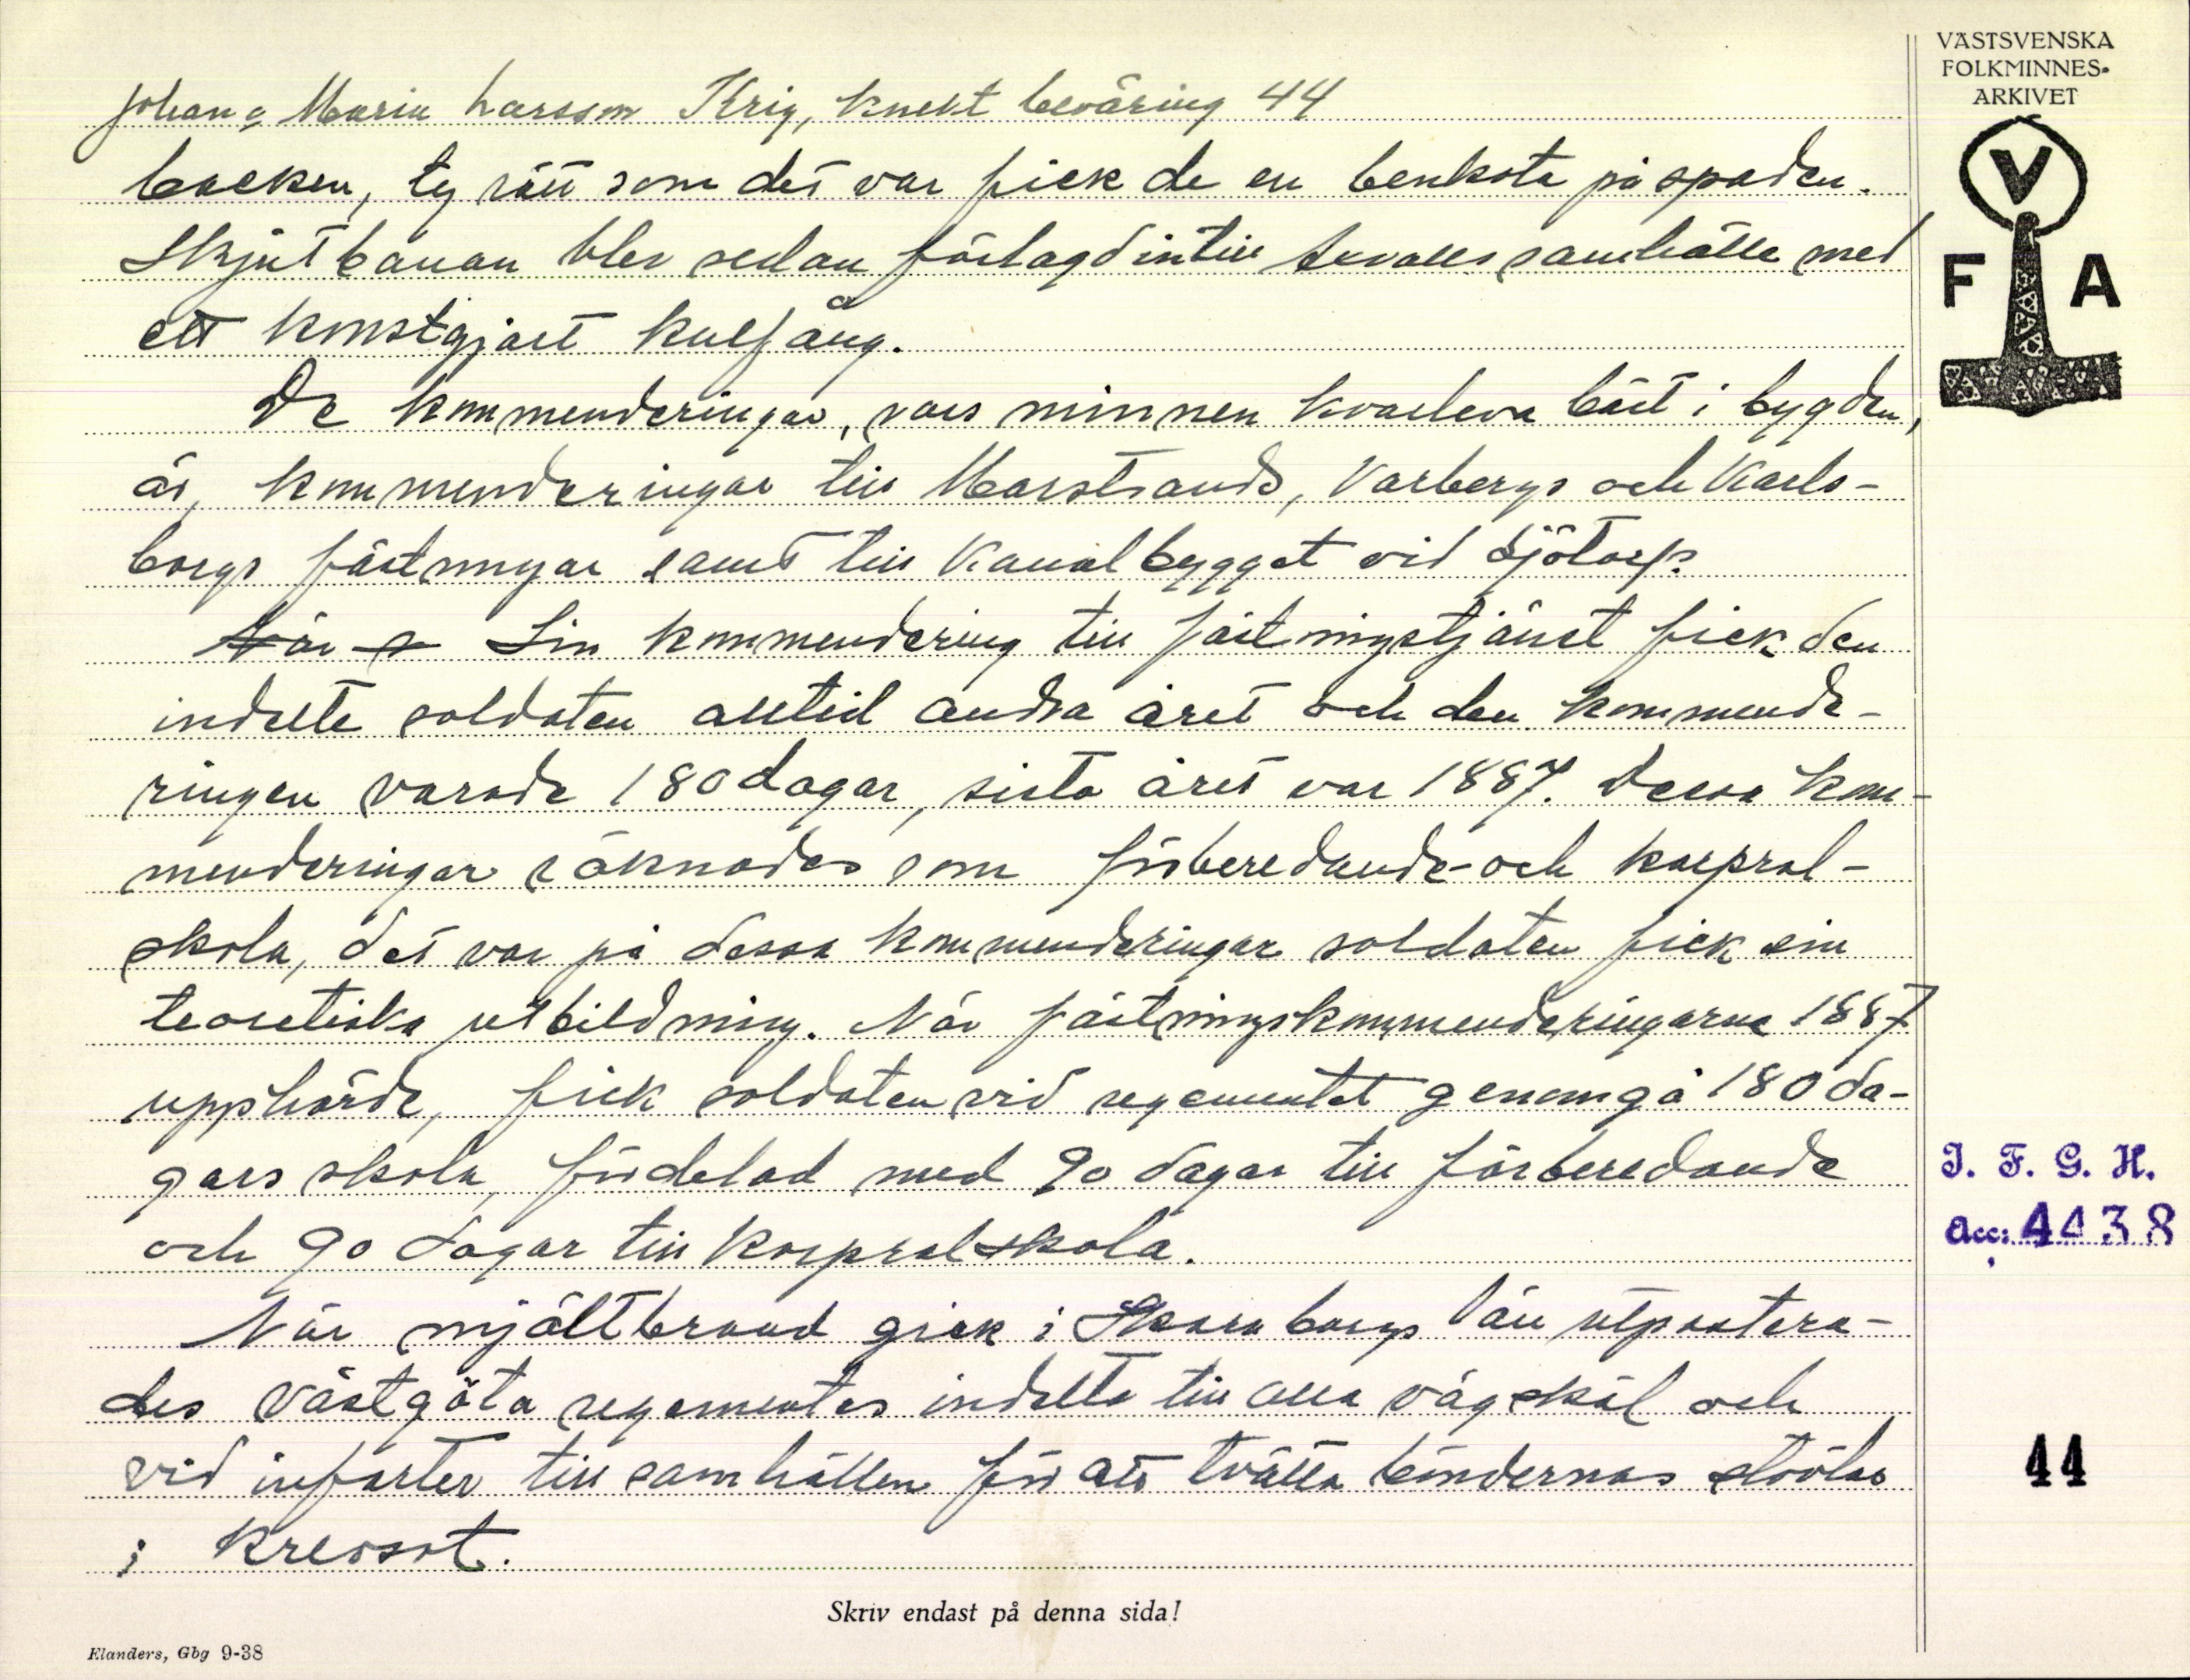 Johan & Maria Larsson Krig, knekt beväring 44
backen, ty rätt som det var fick de en benkota på spaden.
Skjutbanan blev sedan förlagd intill Axvalls samhälle med
ett konstgjort kulfång.
De kommenderingar, vars minnen kvarleva bäst i bygden,
är, kommenderingar till Marstrands, Varbergs och Karls-
borgs fästningar samt till Kanalbygget vid Sjötorp.
När Sin kommendering till fästningstjänst fick den
indelte soldaten alltid andra året och den kommende-
ringen varade 180 dagar, sista året var 1887. Dessa kom-
menderingar räknades som förberedande- och korpral-
skola, det var på dessa kommenderingar soldaten fick sin
teoretiska utbildning. När fästningskommenderingarna 1887
upphörde, fick soldaten vid regementet genomgå 180 da-
gars skola, fördelad med 90 dagar till förberedande
och 90 dagar till korpralskola.
När mjältbrand gick i Skaraborgs län utpostera-
des Västgöta regementes indelta till alla vägskäl och
vid infarter till samhällen för att tvätta böndernas stövlar
i kreosot.
VÄSTSVENSKA
FOLKMINNES-
ARKIVET
V
F A
I. F. G. H.
Acc: 4438
44
Skriv endast på denna sida!
Elanders, Gbg 9-38